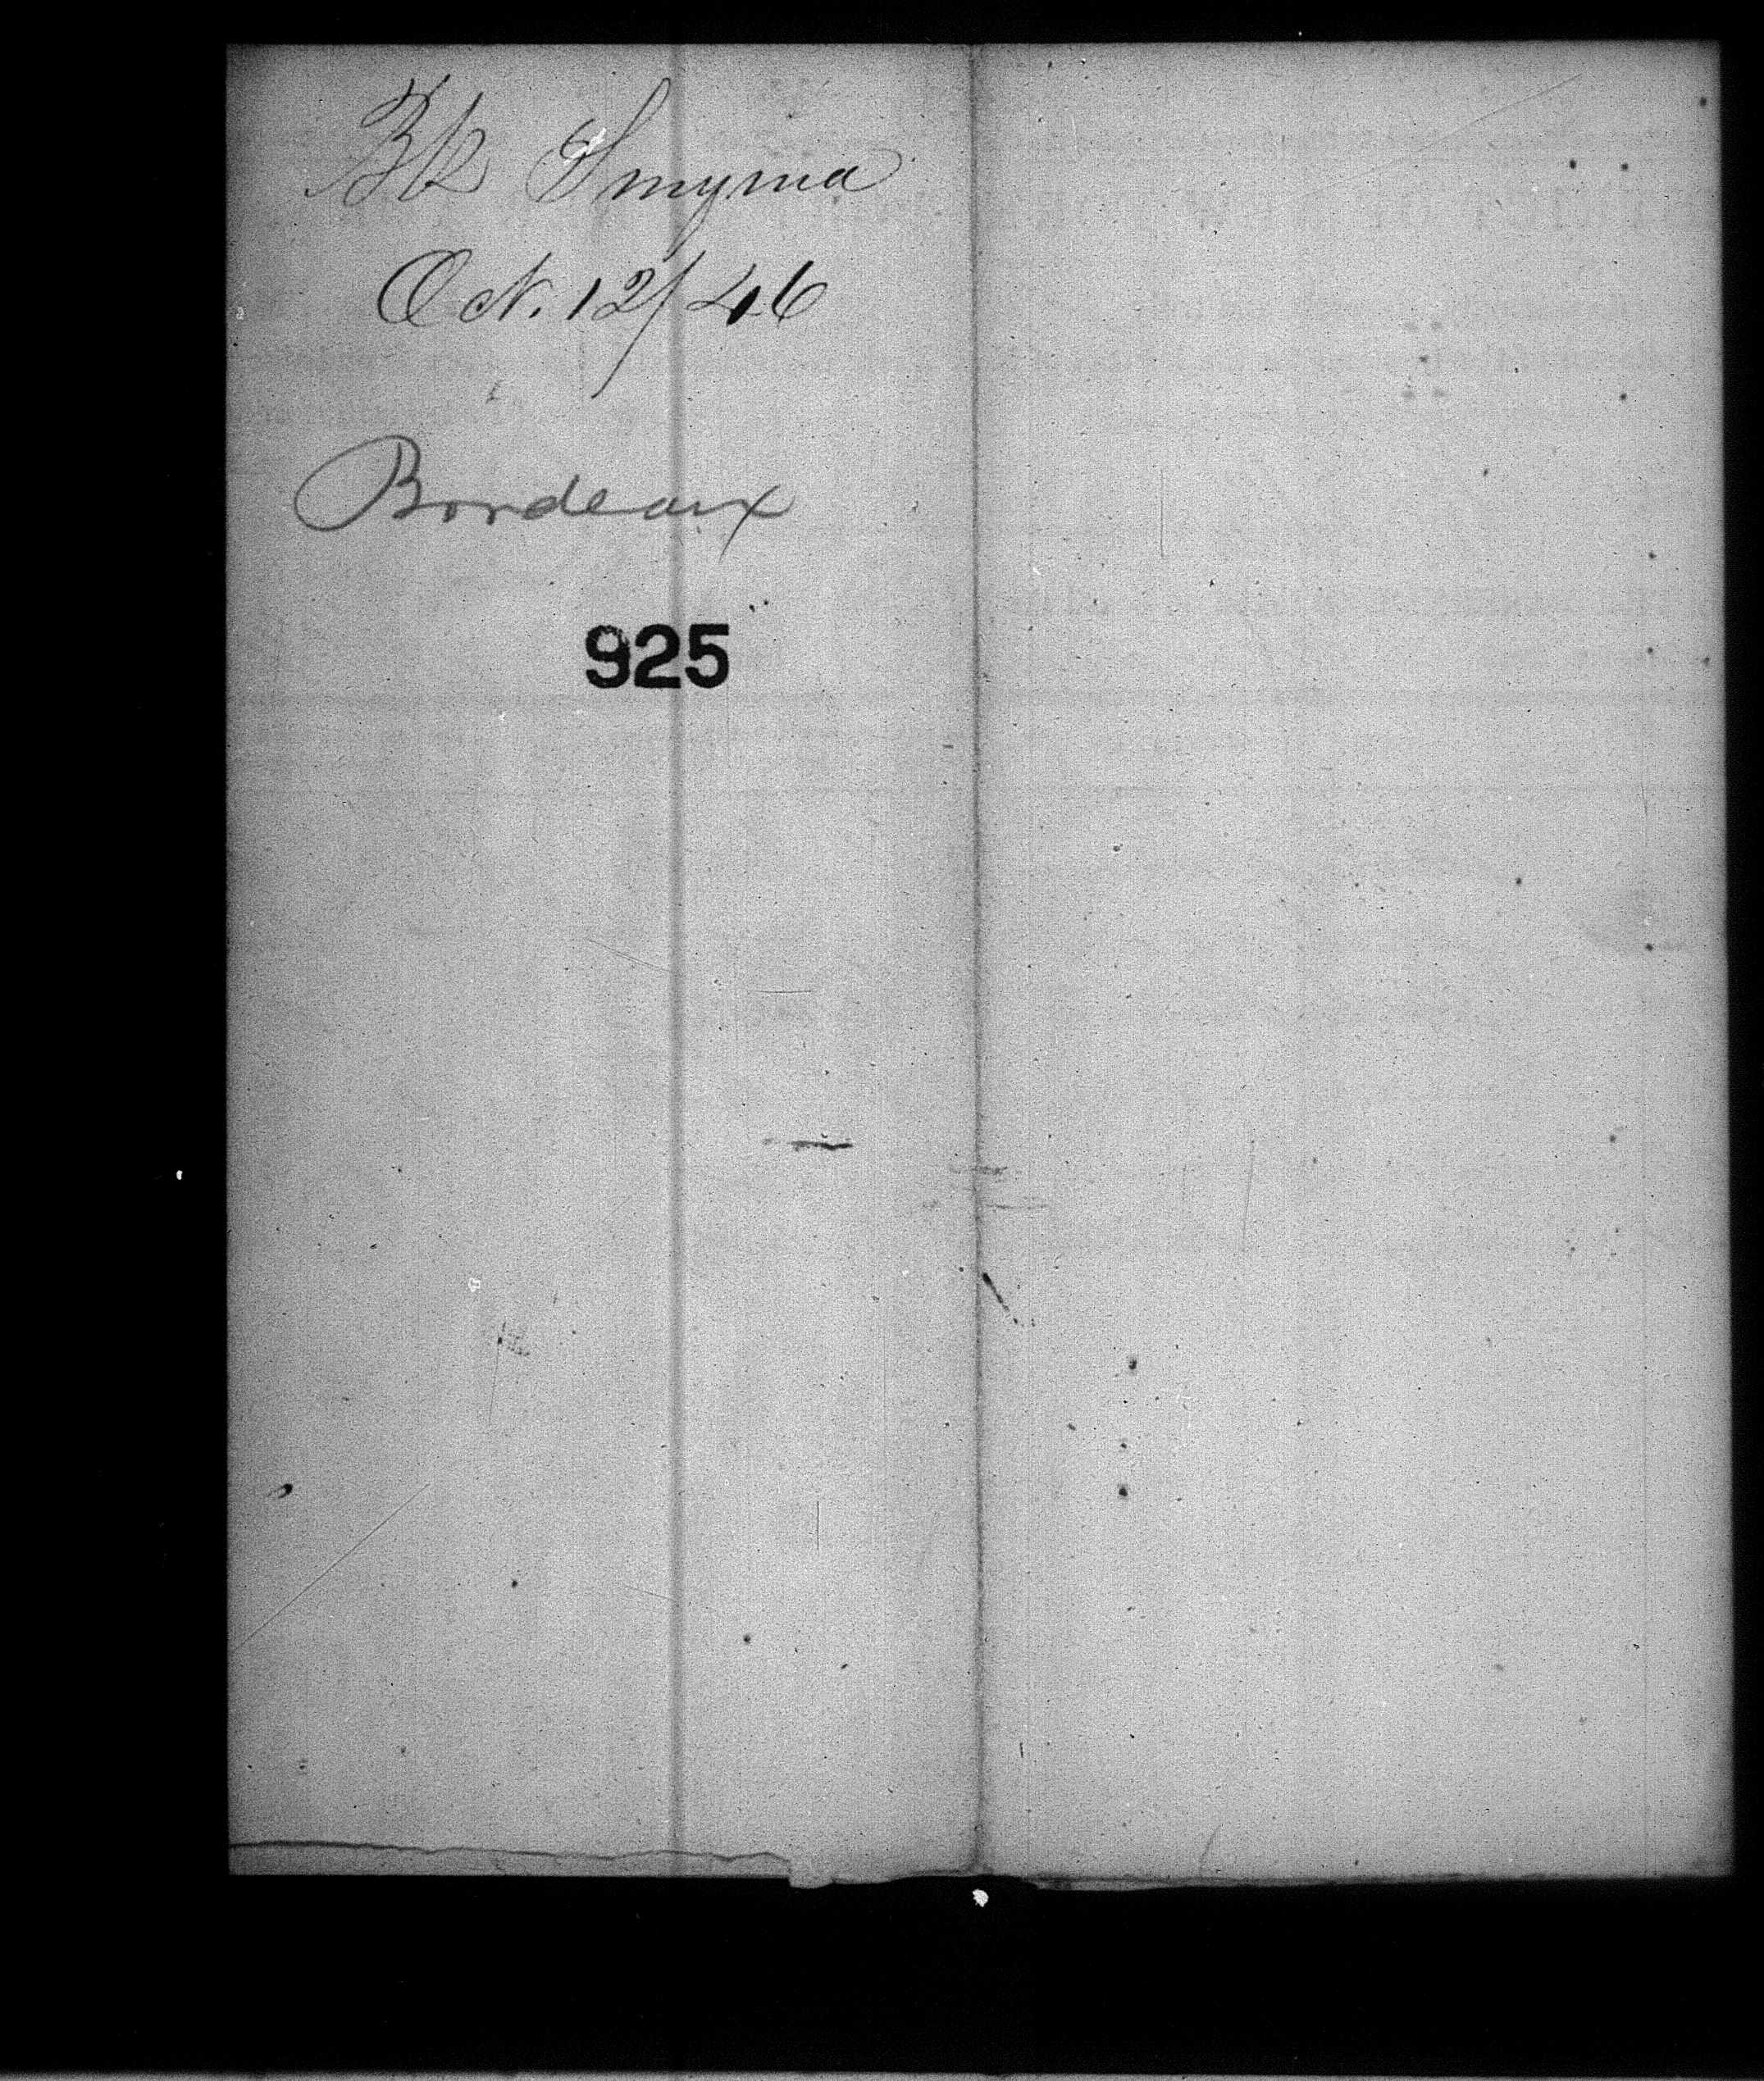 Bk Smyrna
Oct. 12/46
Bordeaux
925